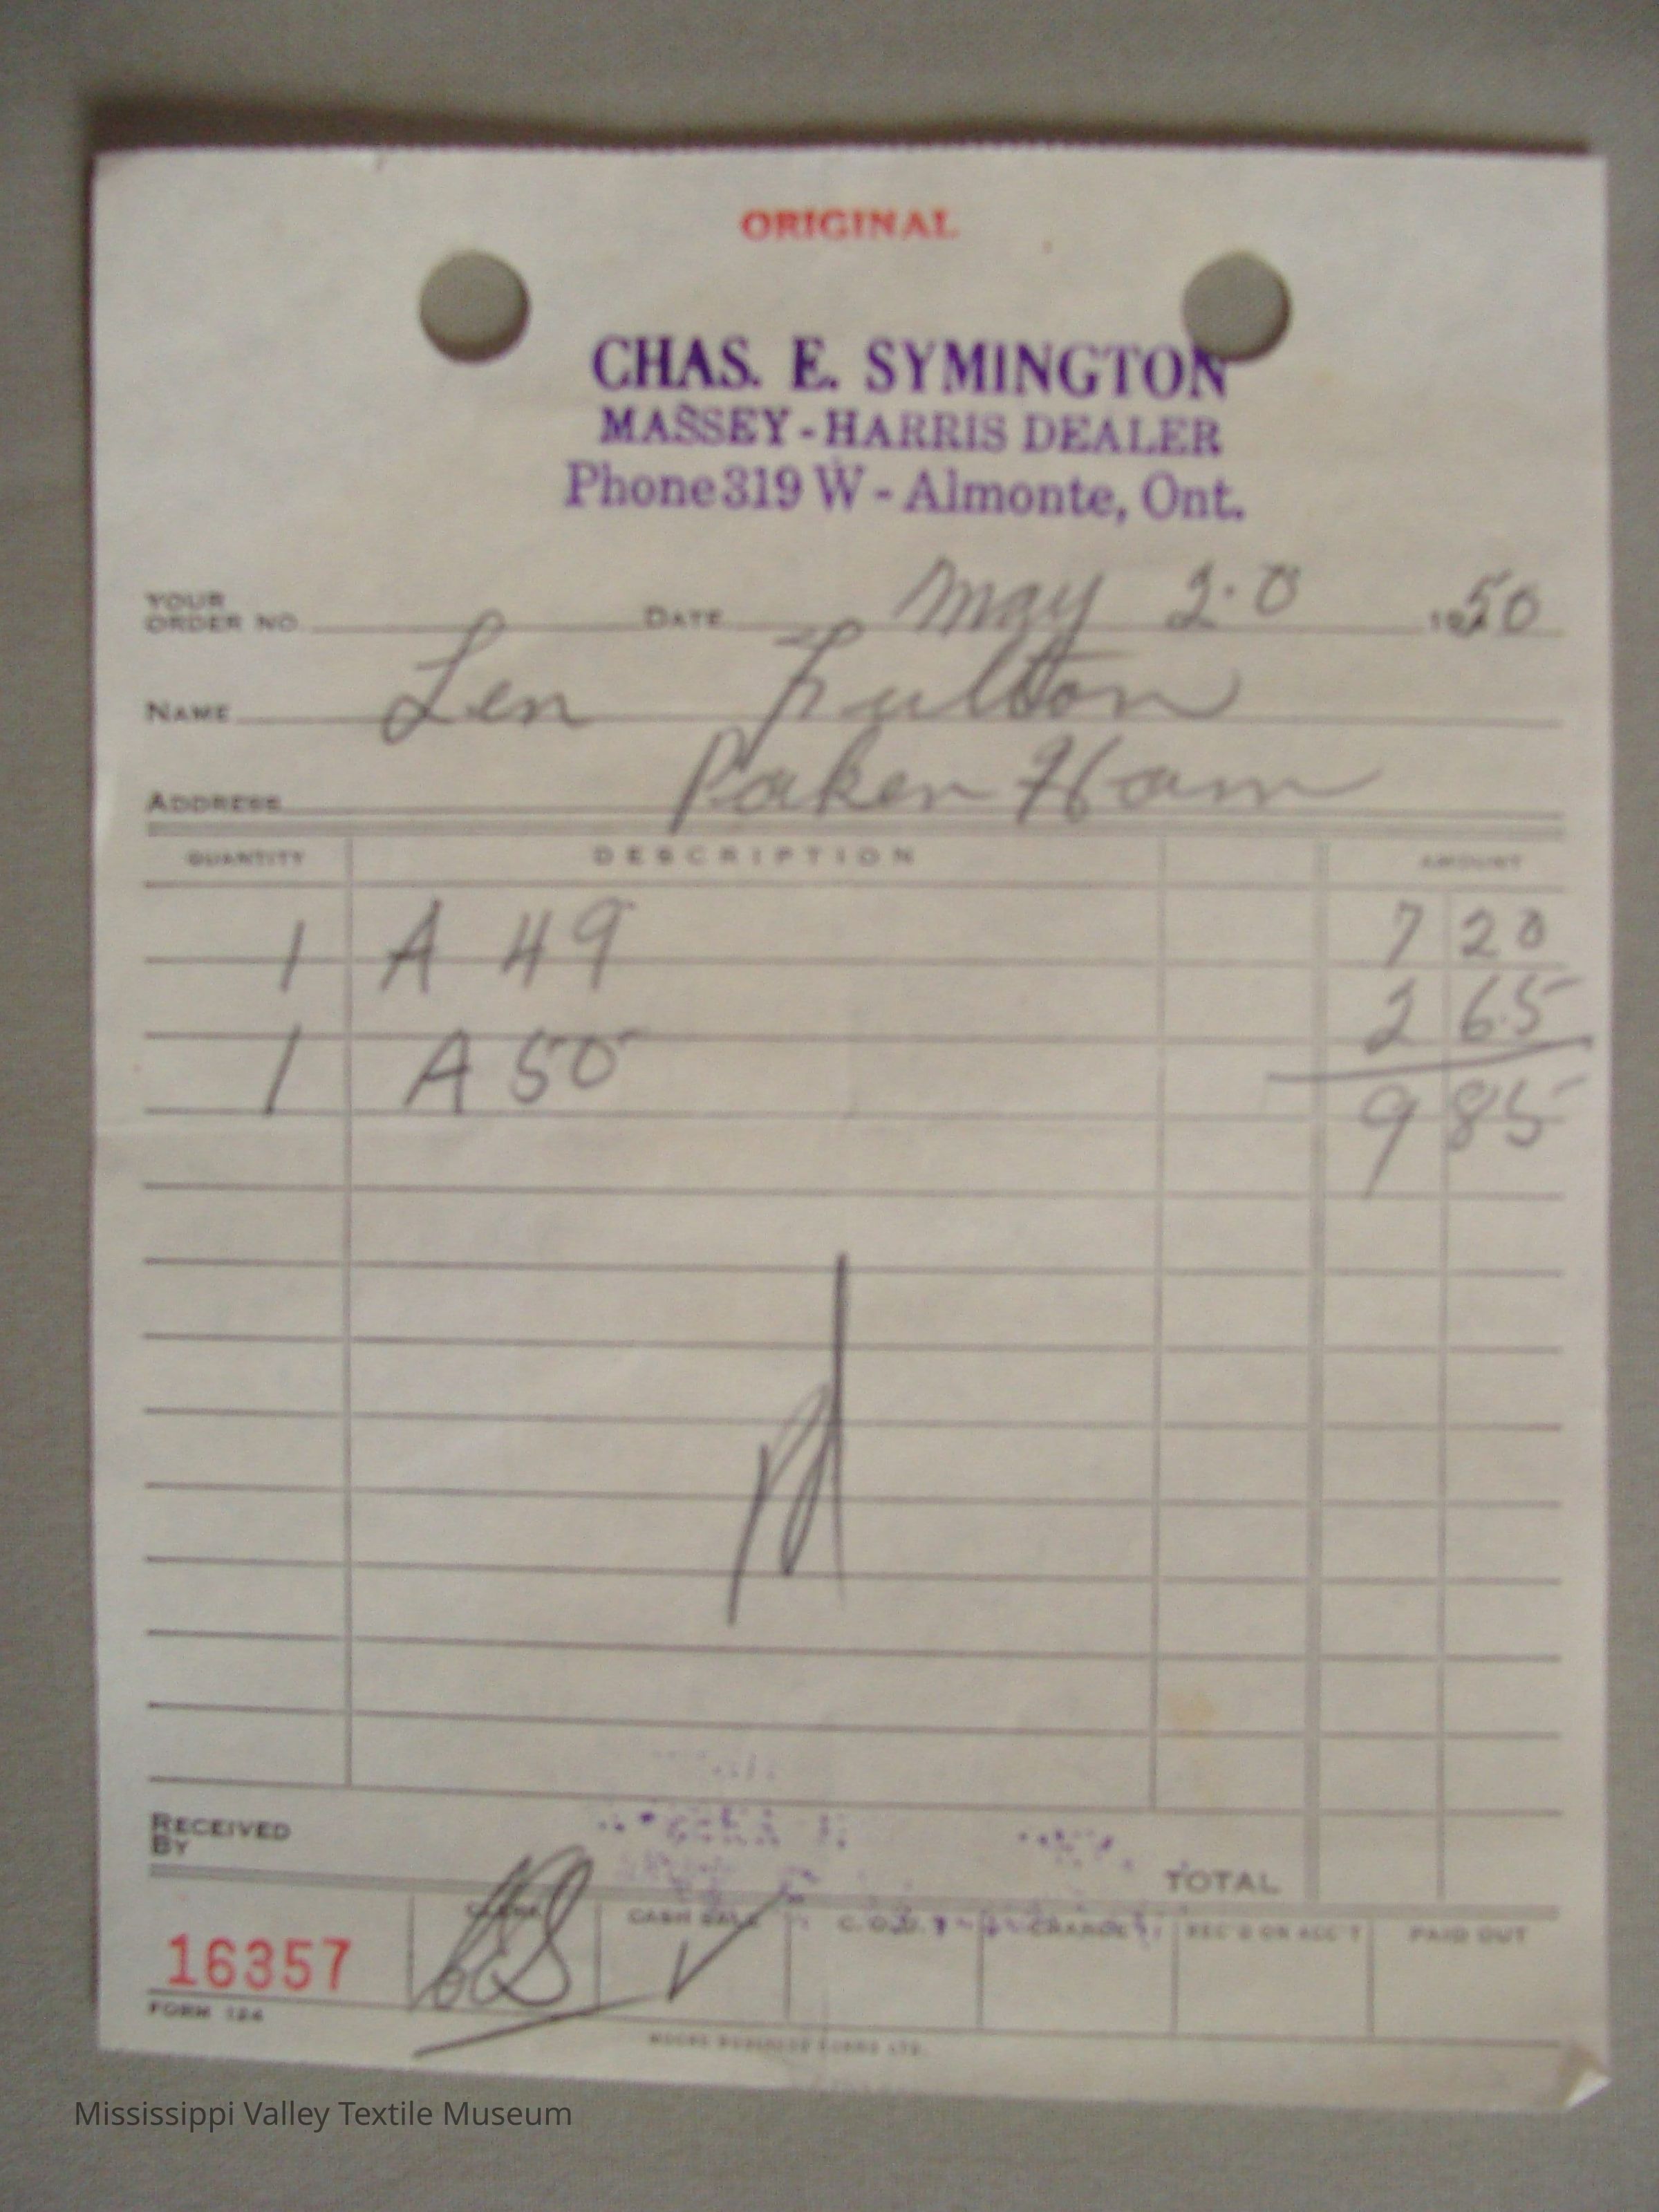 ORIGINAL
CHAS. E. SYMINGTON
MASSEY-HARRIS DEALER
Phone 319 W - Almonte, Ont.
YOUR
ORDER NO. DATE May 20 1950
NAME Len Fulton
ADDRESS PakenHam
QUANTITY DESCRIPTION AMOUNT
1 A 49 7 20
1 A 50 2 65
9 85
Pd
RECEIVED
BY
TOTAL
CLERK CASH SALE C.O.D. CHARGE REC'D ON ACC'T PAID OUT
16357
FORM 124
MOORE BUSINESS FORMS LTD.
Mississippi Valley Textile Museum